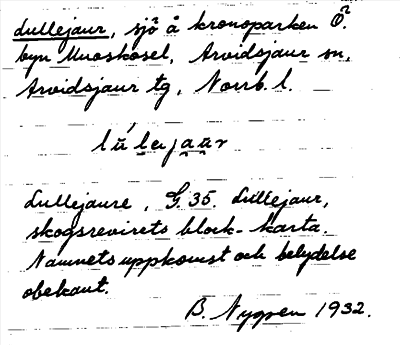 Lullejaur, sjö å kronoparken Ö.
byn Muoskosel, Arvidsjaur sn,
Arvidsjaur tg, Norrb. l.
Lullejaure, G 35. Lullejaur,
skogsrevirets block-karta.
Namnets uppkomst och betydelse
obekant.
B. Nygren 1932.